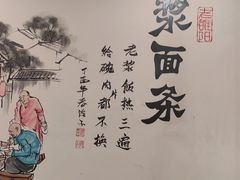 浆面条
老浆饭热三遍
给碗肉片都不换
丁酉年